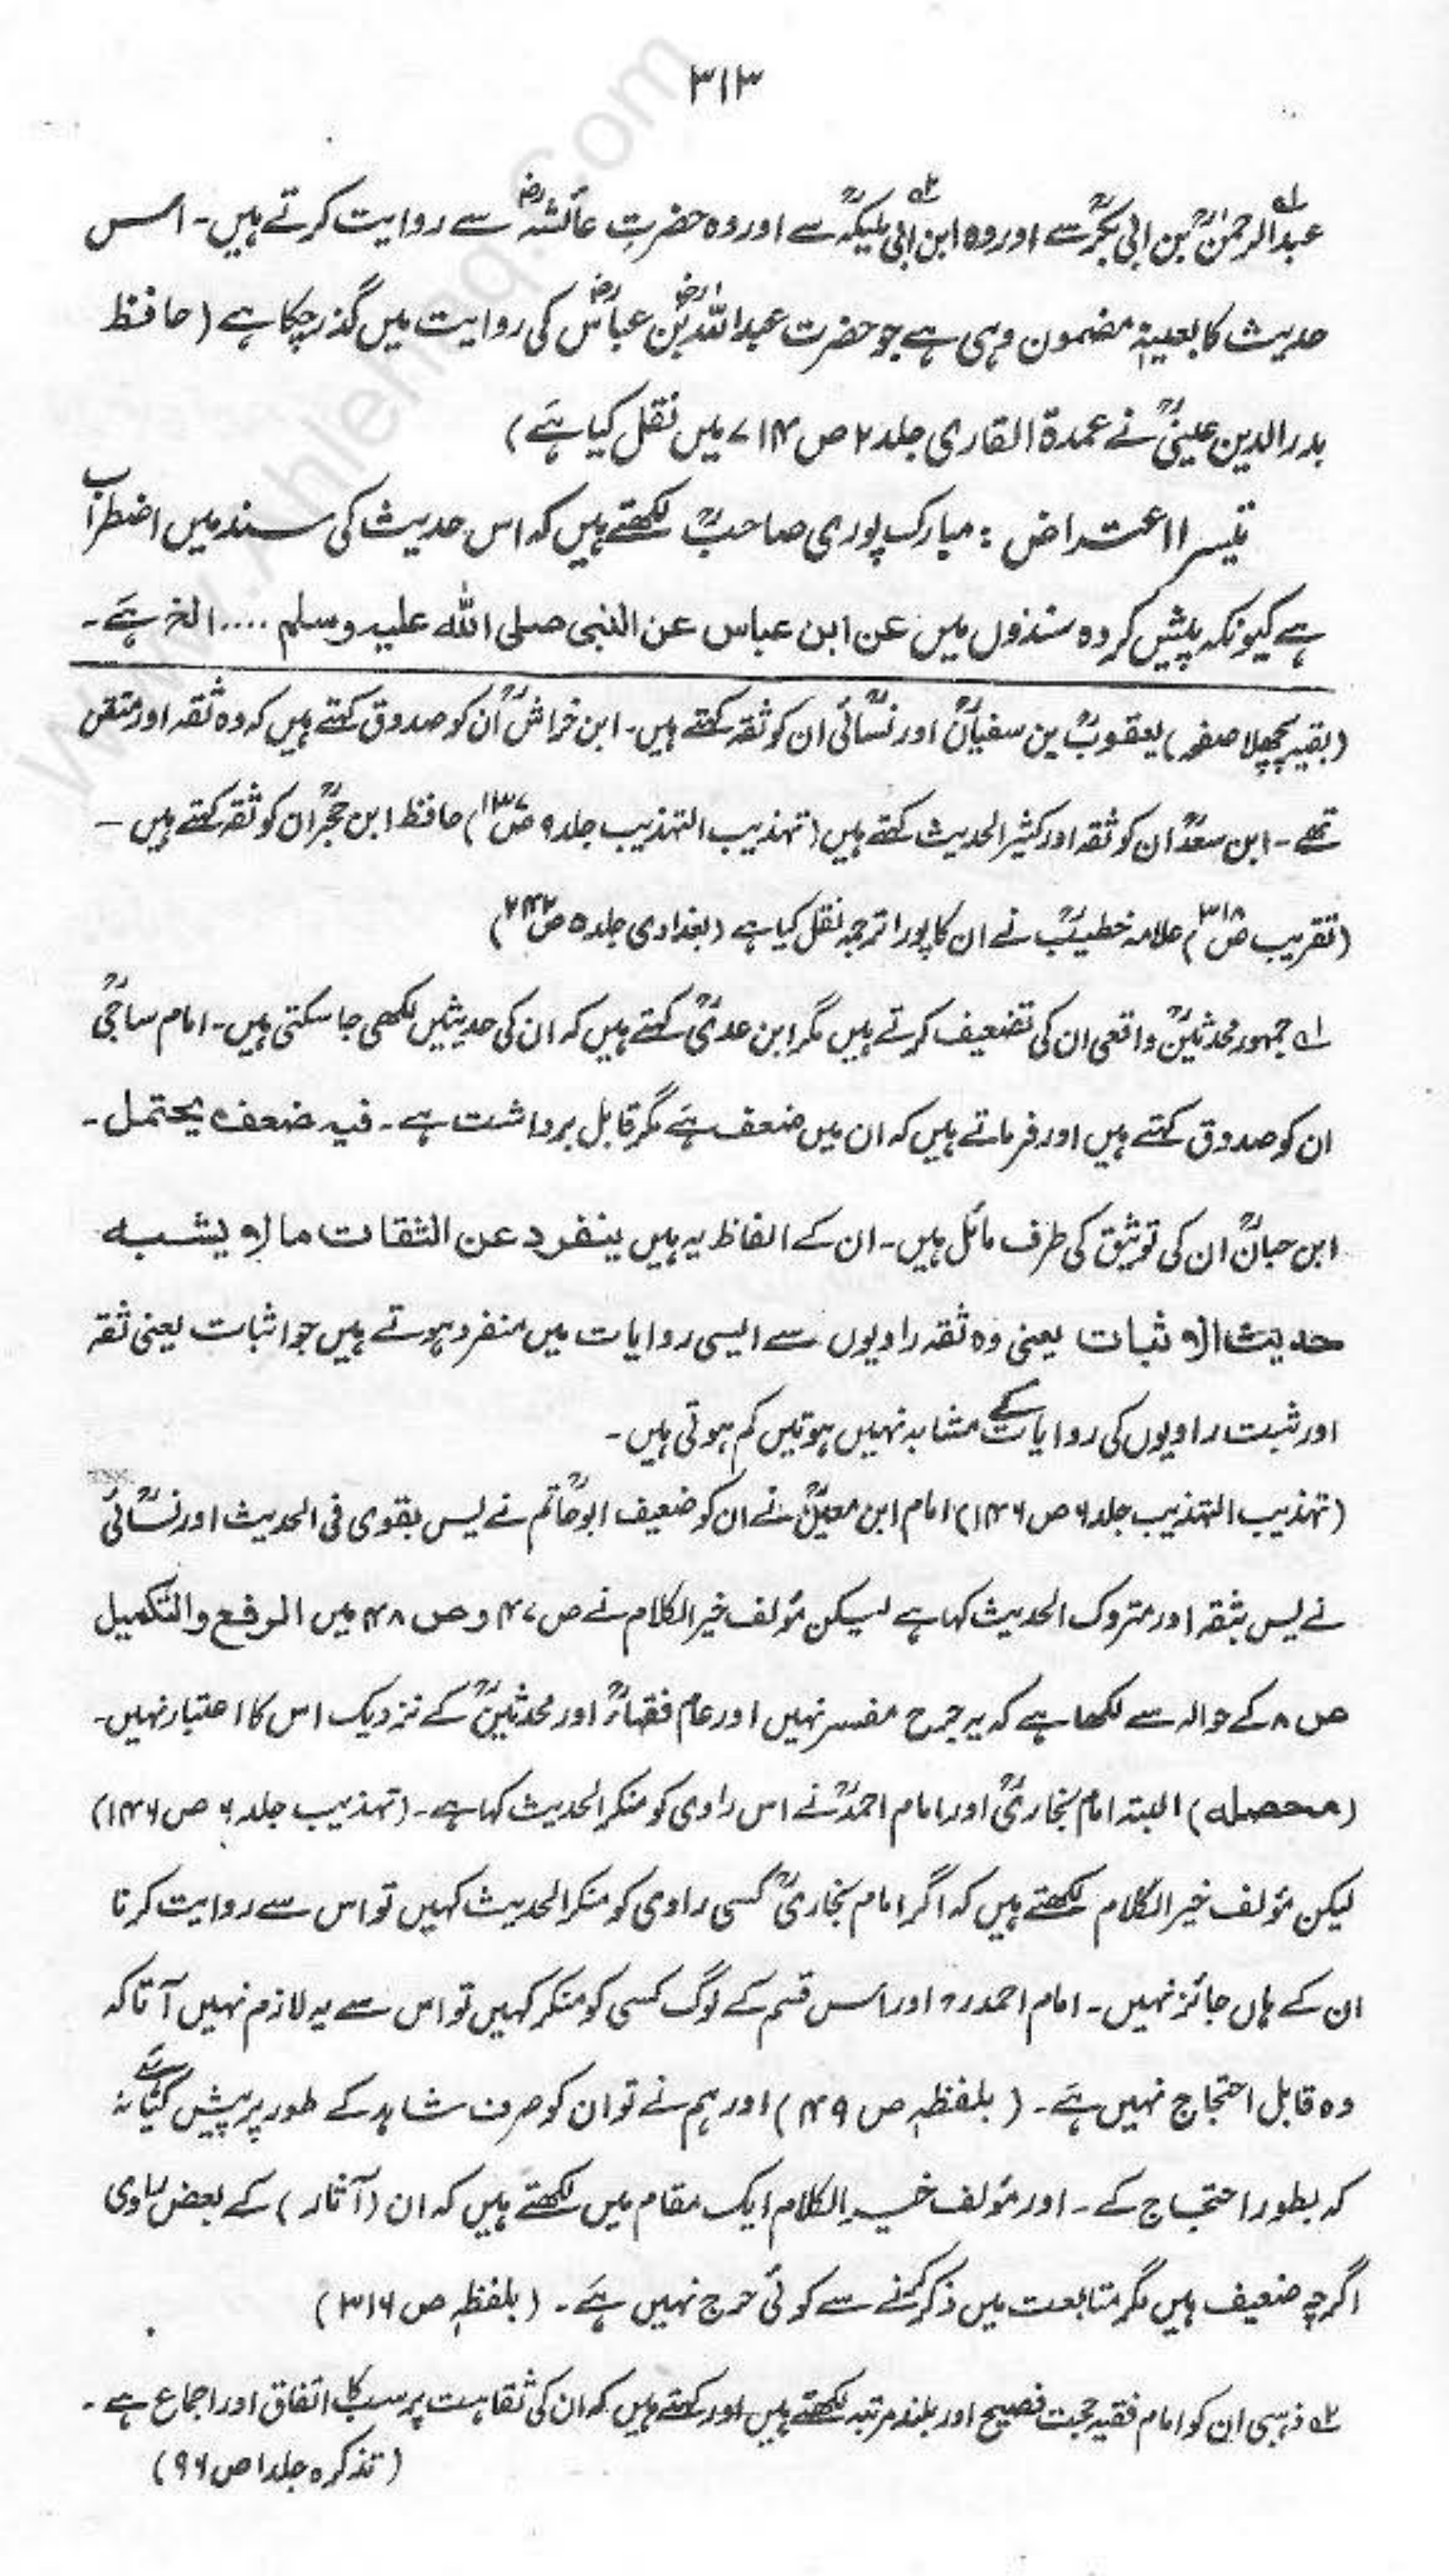 ۳۱۳
عبدالرحمنؒ بن ابی بکرؒ سے اور وہ ابن ابی ملیکہؒ سے اور وہ حضرت عائشہؓ سے روایت کرتے ہیں۔ اس
حدیث کا بعینہٖ مضمون وہی ہے جو حضرت عبداللہؓ بن عباسؓ کی روایت میں گذر چکا ہے (حافظ
بدرالدین عینیؒ نے عمدۃ القاری جلد ۲ ص ۷۱۴ میں نقل کیا ہے)
تیسرا اعتراض : مبارک پوری صاحبؒ لکھتے ہیں کہ اس حدیث کی سند میں اضطراب
ہے کیونکہ پیش کردہ سندوں میں عن ابن عباس عن النبی صلی اللہ علیہ وسلم .... الخ ہے۔
(بقیہ پچھلا صفحہ) یعقوبؒ بن سفیانؒ اور نسائیؒ ان کو ثقہ کہتے ہیں۔ ابن خراشؒ ان کو صدوق کہتے ہیں کہ وہ ثقہ اور متقن
تھے۔ ابن سعدؒ ان کو ثقہ اور کثیر الحدیث کہتے ہیں (تہذیب التہذیب جلد ۹ ص۱۳۷) حافظ ابن حجرؒ ان کو ثقہ کہتے ہیں ـ
(تقریب ص۳۱۸) علامہ خطیبؒ نے ان کا پورا ترجمہ نقل کیا ہے (بغدادی جلد ۵ ص۲۴۲)
۱؎ جمہور محدثینؒ واقعی ان کی تضعیف کرتے ہیں مگر ابن عدیؒ کہتے ہیں کہ ان کی حدیثیں لکھی جا سکتی ہیں۔ امام ساجیؒ
ان کو صدوق کہتے ہیں اور فرماتے ہیں کہ ان میں ضعف ہے مگر قابل برداشت ہے۔ فیہ ضعف یحتمل۔
ابن حبانؒ ان کی توثیق کی طرف مائل ہیں۔ ان کے الفاظ یہ ہیں ینفرد عن الثقات مالا یشبہ
حدیث الاثبات یعنی وہ ثقہ راویوں سے ایسی روایات میں منفرد ہوتے ہیں جو اثبات یعنی ثقہ
اور ثبت راویوں کی روایات کے مشابہ نہیں ہوتیں کم ہوتی ہیں۔
(تہذیب التہذیب جلد ۶ ص ۱۴۶) امام ابن معینؒ نے ان کو ضعیف ابوحاتمؒ نے لیس بقوی فی الحدیث اور نسائیؒ
نے لیس بثقہ اور متروک الحدیث کہا ہے لیکن مؤلف خیر الکلام نے ص ۴۷ و ص ۴۸ میں الرفع والتکمیل
ص ۸ کے حوالہ سے لکھا ہے کہ یہ جرح مفسر نہیں اور عام فقہاءؒ اور محدثینؒ کے نزدیک اس کا اعتبار نہیں۔
(محصلہ) البتہ امام بخاریؒ اور امام احمدؒ نے اس راوی کو منکر الحدیث کہا ہے۔ (تہذیب جلد ۶ ص ۱۴۶)
لیکن مؤلف خیر الکلام لکھتے ہیں کہ اگر امام بخاریؒ کسی راوی کو منکر الحدیث کہیں تو اس سے روایت کرنا
ان کے ہاں جائز نہیں۔ امام احمد رہ اور اس قسم کے لوگ کسی کو منکر کہیں تو اس سے یہ لازم نہیں آتا کہ
وہ قابل احتجاج نہیں ہے۔ (بلفظہٖ ص ۴۹) اور ہم نے تو ان کو صرف شاہد کے طور پر پیش کیا ہے نہ
کہ بطور احتجاج کے۔ اور مؤلف خیر الکلام ایک مقام میں لکھتے ہیں کہ ان (آثار) کے بعض راوی
اگرچہ ضعیف ہیں مگر متابعت میں ذکر کرنے سے کوئی حرج نہیں ہے۔ (بلفظہٖ ص ۳۱۶)
۲؎ ذہبی ان کو امام فقیہ حجت فصیح اور بلند مرتبہ لکھتے ہیں اور کہتے ہیں کہ ان کی ثقاہت پر سب کا اتفاق اور اجماع ہے۔
(تذکرہ جلد ۱ ص ۹۶)
www.Ahlehaq.Com